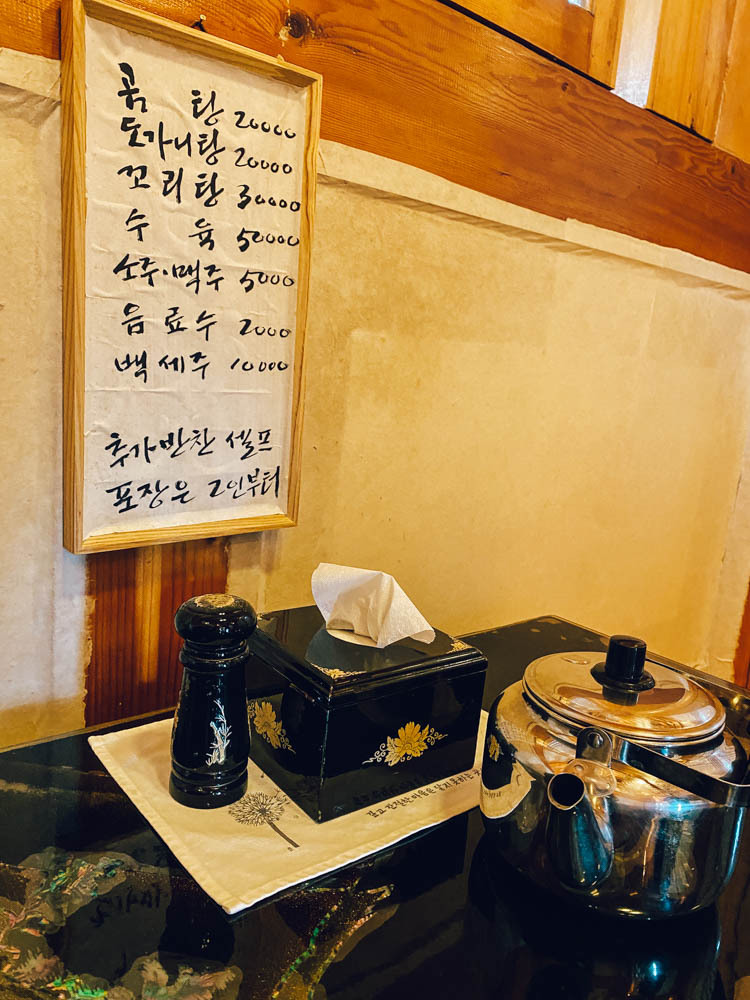 곰 탕 20000
도가니탕 20000
꼬리탕 30000
수 육 50000
소주·맥주 5000
음료수 2000
백세주 10000
추가반찬 셀프
포장은 2인부터